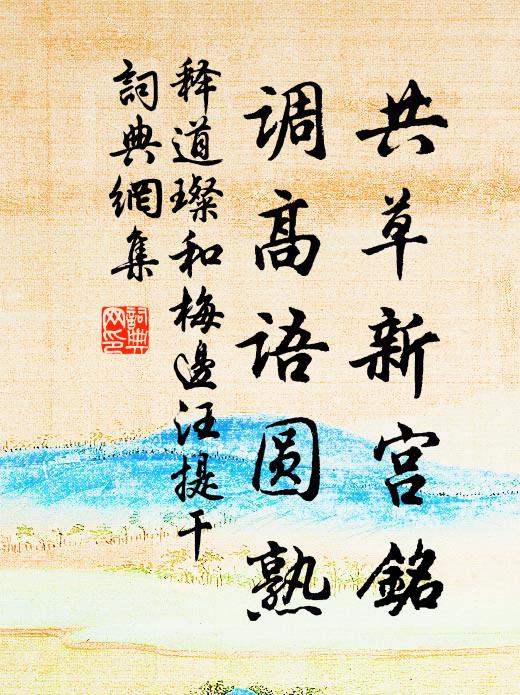 共草新宫銘
調高语圆熟
释道璨和梅邊汪提干
詞典網集
詞典
网印